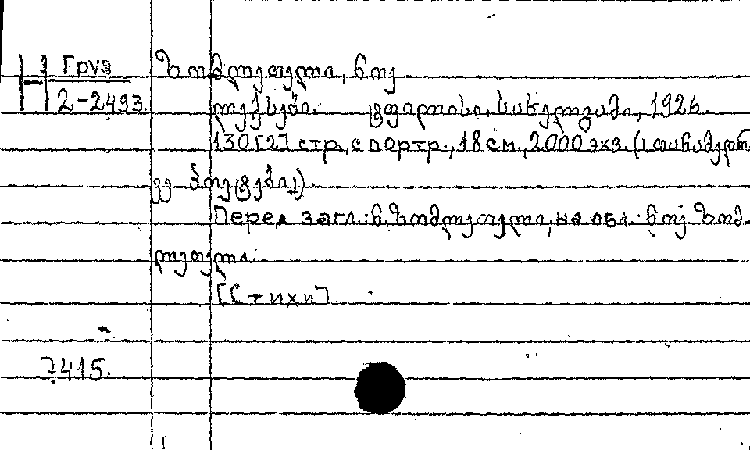 Груз
Н 2-2493
ზომლეთელი, ნოე
ლექსები. ტფილისი, სახელგამი, 1926.
130 [2] стр., с портр., 18 см., 2000 экз. (
Перед загл.: ნ. ზომლეთელი, на обл.: ნოე ზომ
ლეთელი.
[Стихи]
7415.